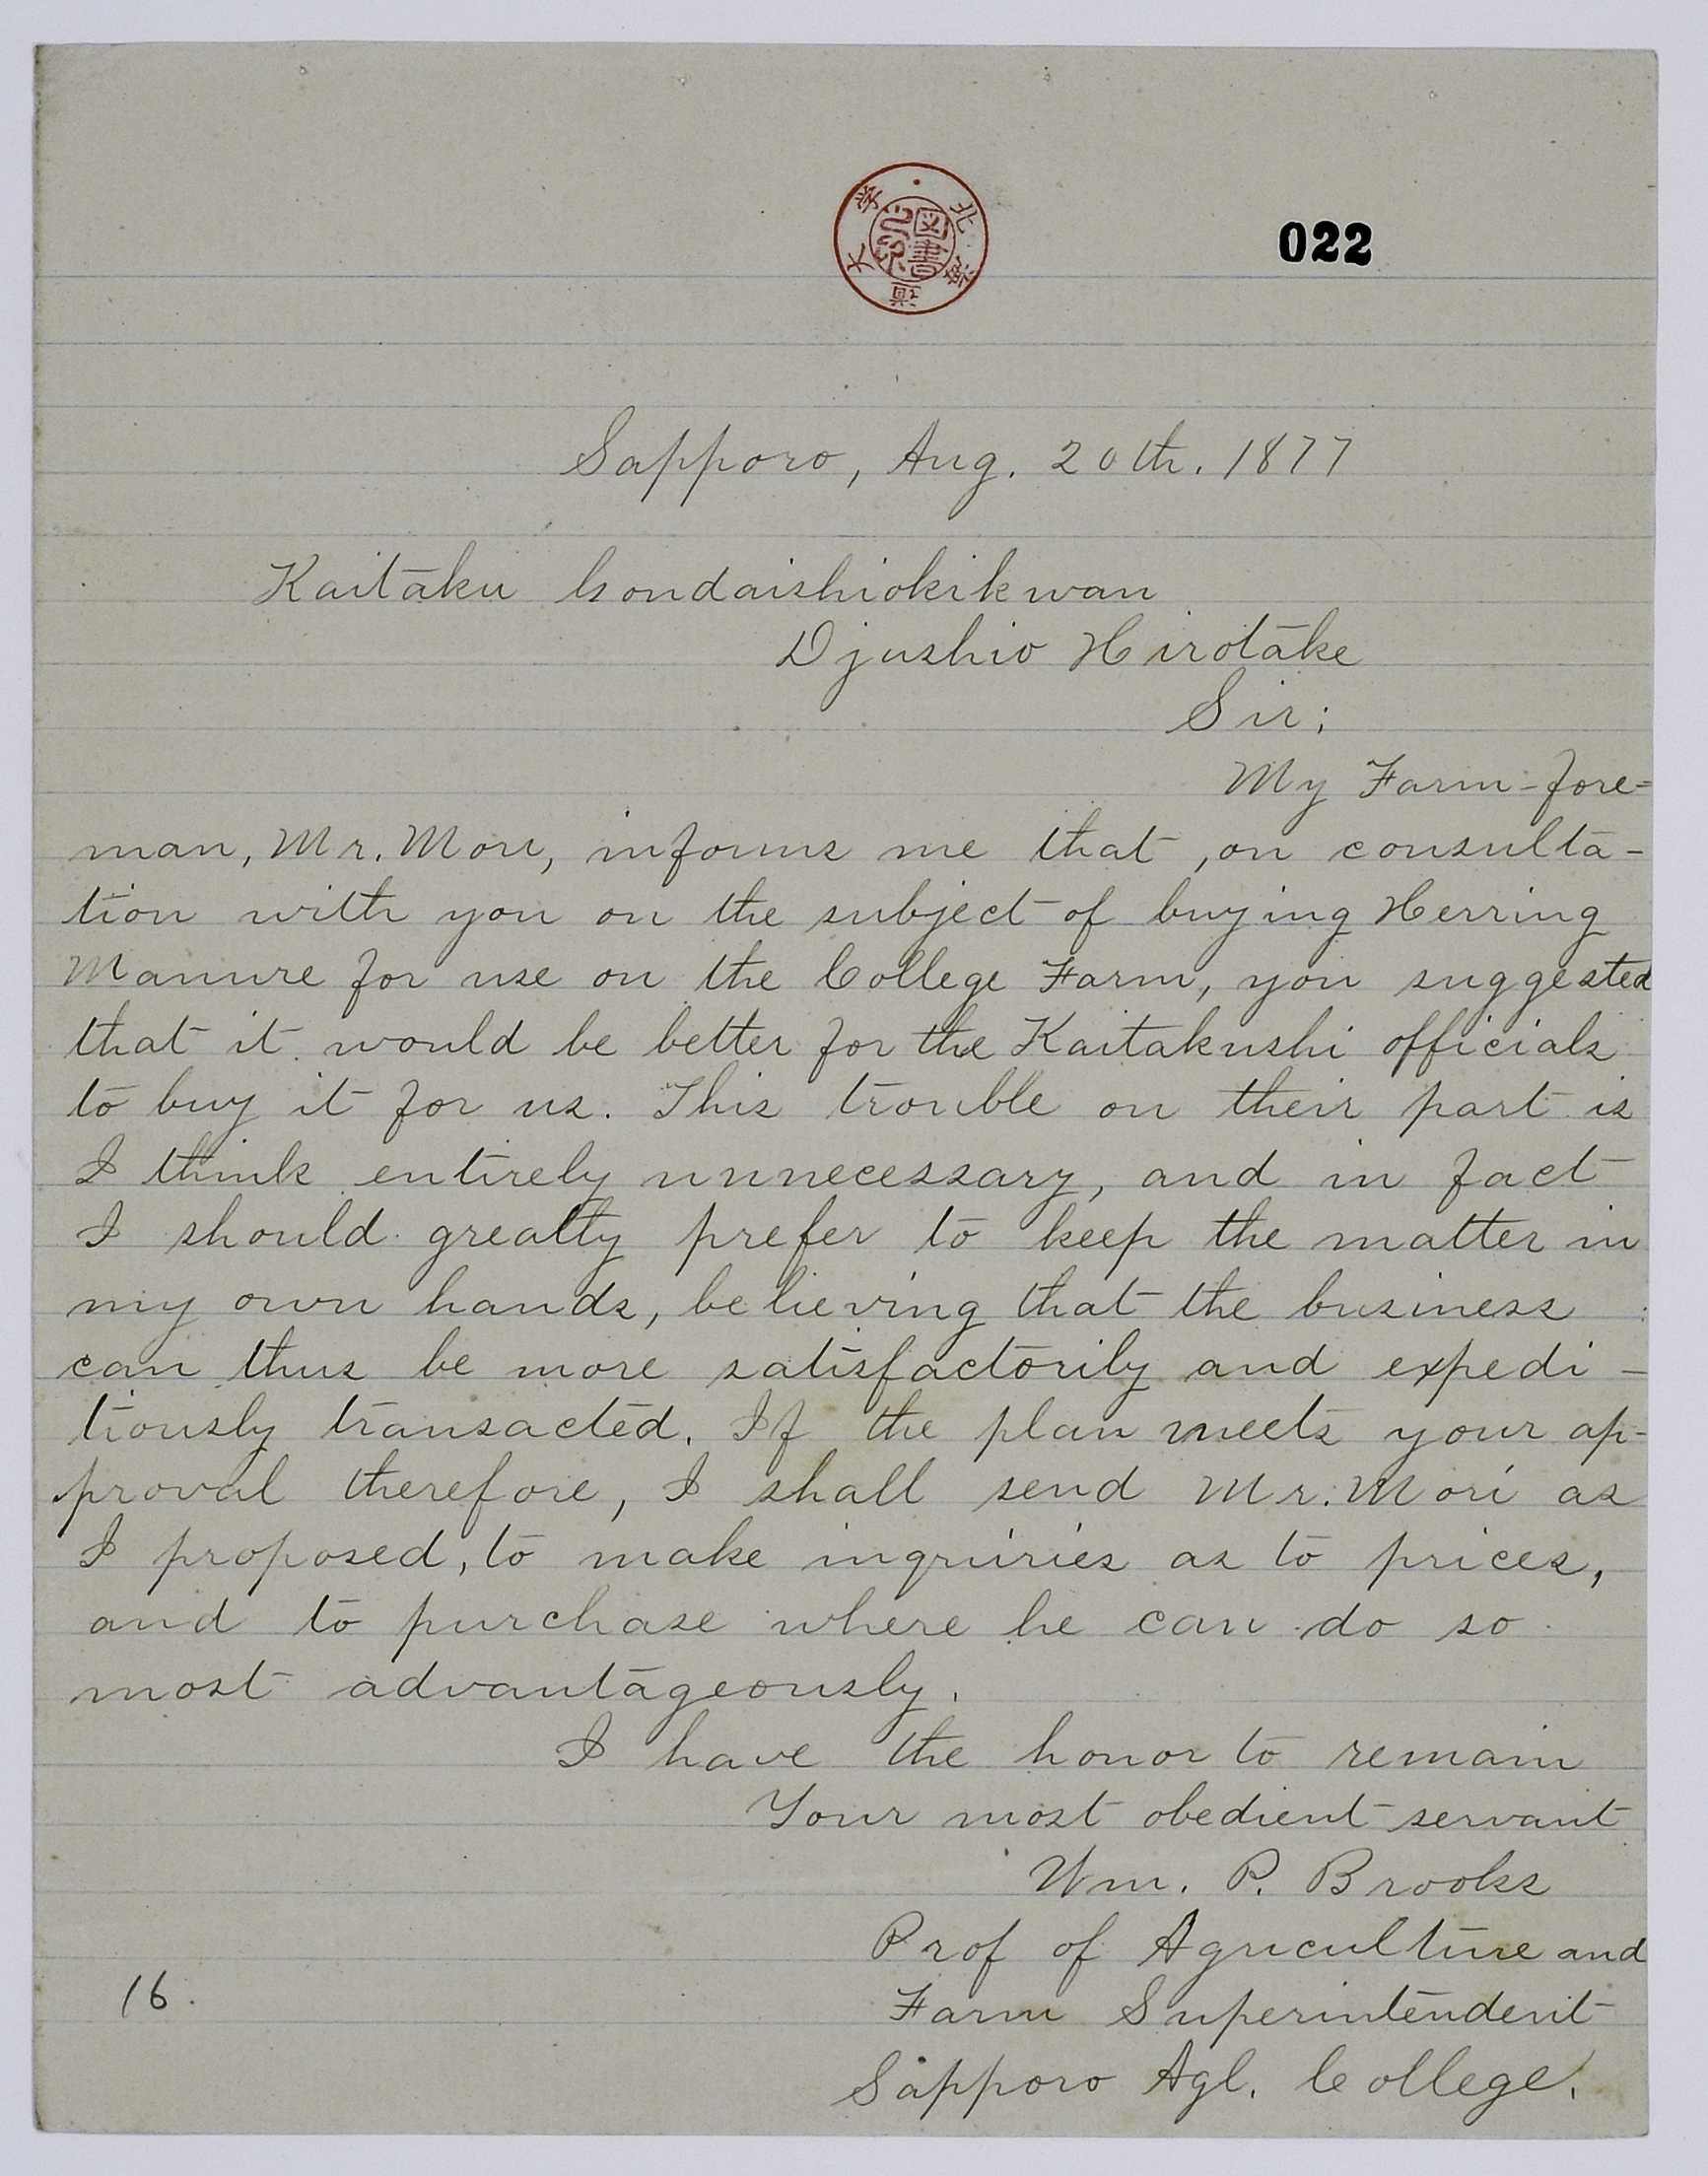 北海道大学
図書之印
022
Sapporo, Aug. 20th. 1877
Kaitaku Gondaishiokikwan
Djushio Hirotake
Sir;
My Farm-fore=
man, Mr. Mori, informs me that, on consulta-
tion with you on the subject of buying Herring
Manure for use on the College Farm, you suggested
that it would be better for the Kaitakushi officials
to buy it for us. This trouble on their part is
I think entirely unnecessary, and in fact
I should greatly prefer to keep the matter in
my own hands, believing that the business
can thus be more satisfactorily and expedi-
tiously transacted. If the plan meets your ap-
proval therefore, I shall send Mr. Mori as
I proposed, to make inquiries as to prices,
and to purchase where he can do so
most advantageously.
I have the honor to remain
Your most obedient servant
Wm. P. Brooks
Prof of Agriculture and
Farm Superintendent
Sapporo Agl. College.
16.